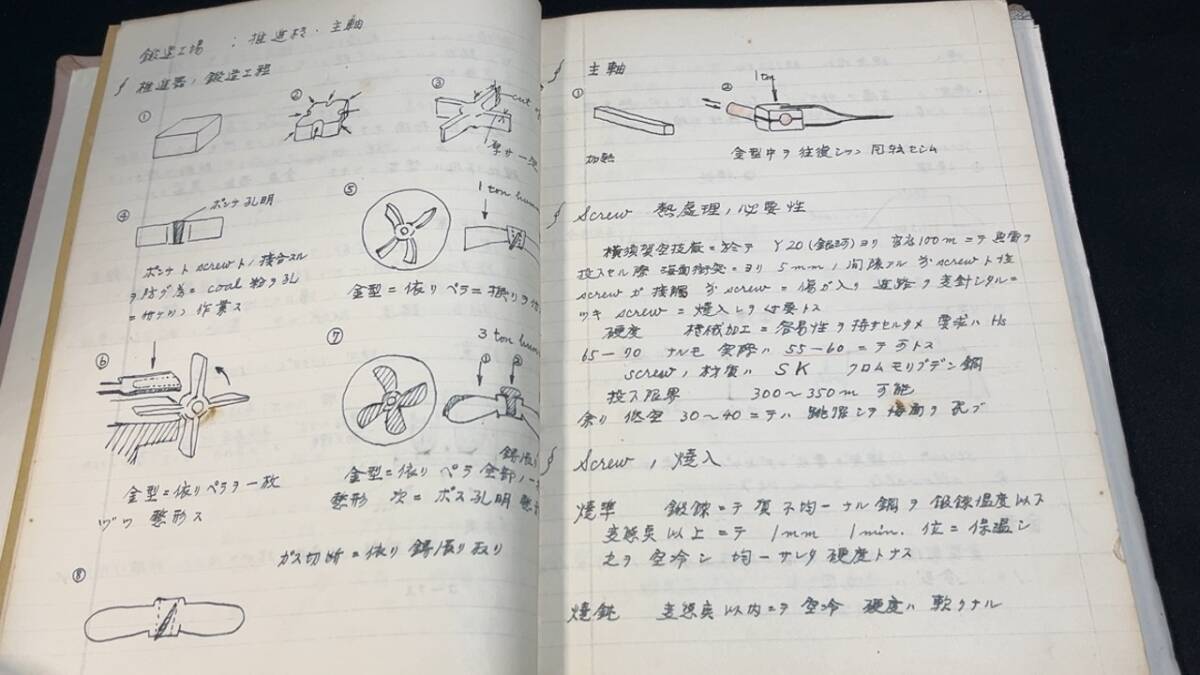 鍛造工場 : 推進器・主軸
§ 推進器ノ鍛造工程
①
②
③
cut
④
ポンチ孔明
ポンチト screw トノ接合スル
ヲ防グ為ニ coal 粉ヲ孔
ニ付ケツヽ作業ス
⑤
1 ton
金型ニ依リペラニ捩リヲ
⑥
金型ニ依リペラヲ一枚
ヅツ 整形ス
⑦
3 ton
① ②
金型ニ依リペラ全部ノ
整形 次ニ ボス孔明
ガス切断ニ依リ鍔張リ取リ
⑧
§ 主軸
①
加熱
②
1 ton
金型中ヲ往復シツツ 回転セシム
§ Screw 熱處理ノ必要性
横須賀空技廠ニ於テ Y20 (銀河) ヨリ 高度100mニテ魚雷ヲ
投入セル際 海面衝突ニヨリ 5mmノ間隙アル 筈 screw ト
screw ガ接觸シ screw ニ傷ガ入リ 進路ヲ
ツキ screw ニ焼入レヲ必要トス
硬度 機械加工ニ容易性ヲ持サセルタメ 要求ハ Hs
65-70 ナルモ 実際ハ 55-60ニテ可トス
screwノ材質ハ SK クロムモリブデン鋼
投下限界 300~350m 可能
余リ低空 30~40ニテハ 跳躍シテ海面ヲ飛ブ
§ Screwノ焼入
焼準 鍛錬ニテ質不均一ナル鋼ヲ鍛錬温度以下
変態点以上ニテ 1mm 1min. 位ニ保温シ
之ヲ空冷シ 均一サレタ硬度トナス
焼鈍 変態点以内ニテ 空冷 硬度ハ軟クナル